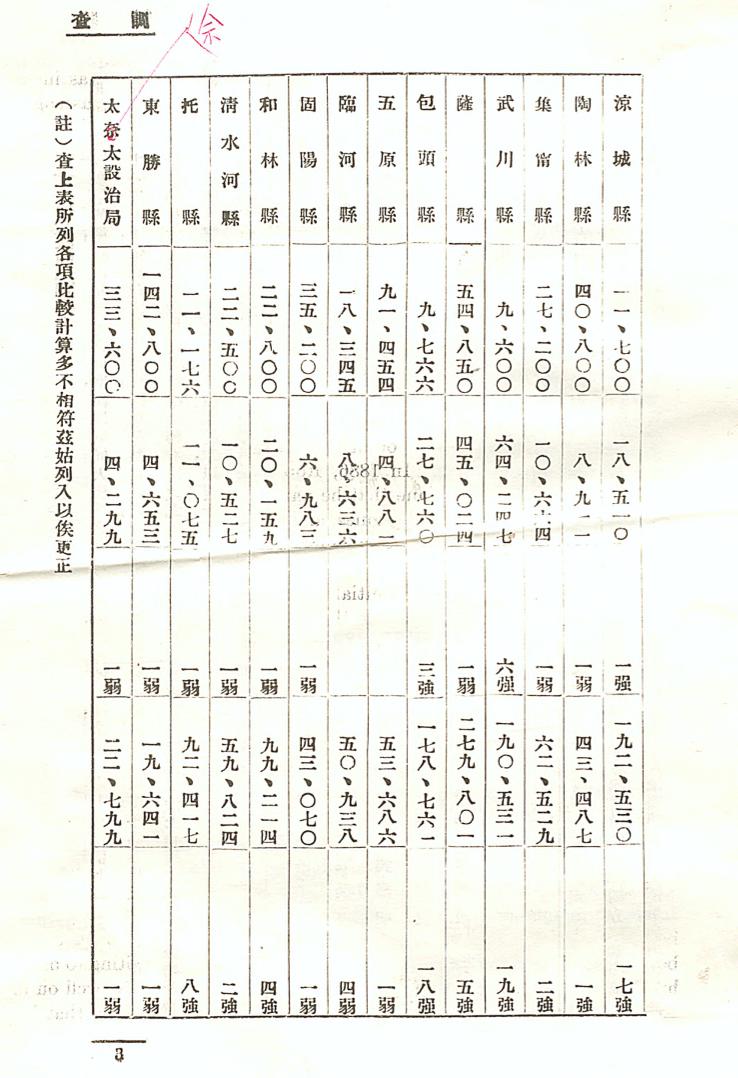 調查
佘
涼城縣 一一、七〇〇 一八、五一〇 一强 一九二、五三〇 一七強
陶林縣 四〇、八〇〇 八、九一一 一弱 四三、四八七 一強
集甯縣 二七、二〇〇 一〇、六六四 一弱 六二、五二九 二強
武川縣 九、六〇〇 六四、二四七 六强 一九〇、五三一 一九強
薩縣 五四、八五〇 四五、〇二四 一弱 二七九、八〇一 五強
包頭縣 九、七六六 二七、七六〇 三強 一七八、七六一 一八强
五原縣 九一、四五四 四、八八一 五三、六八六 一弱
臨河縣 一八、三四五 八、六三六 五〇、九三八 四弱
固陽縣 三五、二〇〇 六、九八三 一弱 四三、〇七〇 一弱
和林縣 二二、八〇〇 二〇、一五九 一弱 九九、二一四 四強
清水河縣 二二、五〇〇 一〇、五二七 一弱 五九、八二四 二強
托縣 一一、一七六 一一、〇七五 一弱 九二、四一七 八強
東勝縣 一四二、八〇〇 四、六五三 一弱 一九、六四一 一弱
太奈太設治局 三三、六〇〇 四、二九九 一弱 二二、七九九 一弱
(註)查上表所列各項比較計算多不相符茲姑列入以俟更正
3